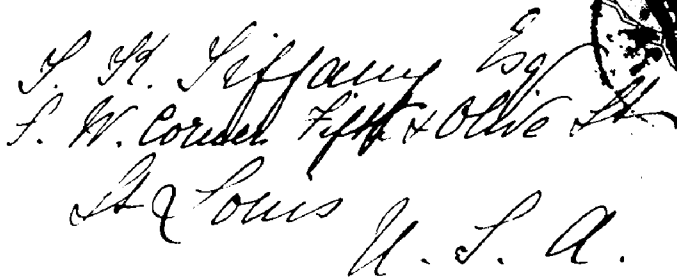 J. K. Tiffany Esq
S. W. Corner Fifth & Olive St
St Louis
U. S. A.